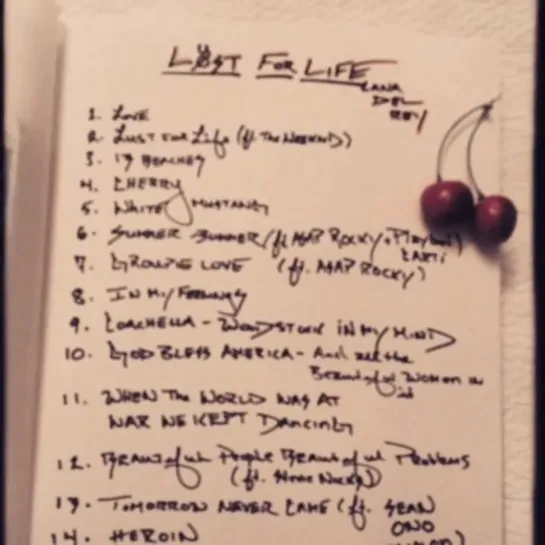 LUST FOR LIFE
LANA
DEL
REY
1. LOVE
2. LUST FOR LIFE (ft. THE WEEKND)
3. 13 BEACHES
4. CHERRY
5. WHITE MUSTANG
6. SUMMER BUMMER (ft. A$AP ROCKY + Playboi
CARTI
7. GROUPIE LOVE (ft. A$AP ROCKY)
8. IN MY FEELINGS
9. COACHELLA - WOODSTOCK IN MY MIND
10. GOD BLESS AMERICA - And all the
Beautiful Women in
it
11. WHEN THE WORLD WAS AT
WAR WE KEPT DANCING
12. Beautiful People Beautiful Problems
(ft. Stevie Nicks)
13. TOMORROW NEVER CAME (ft. SEAN
ONO
14. HEROIN